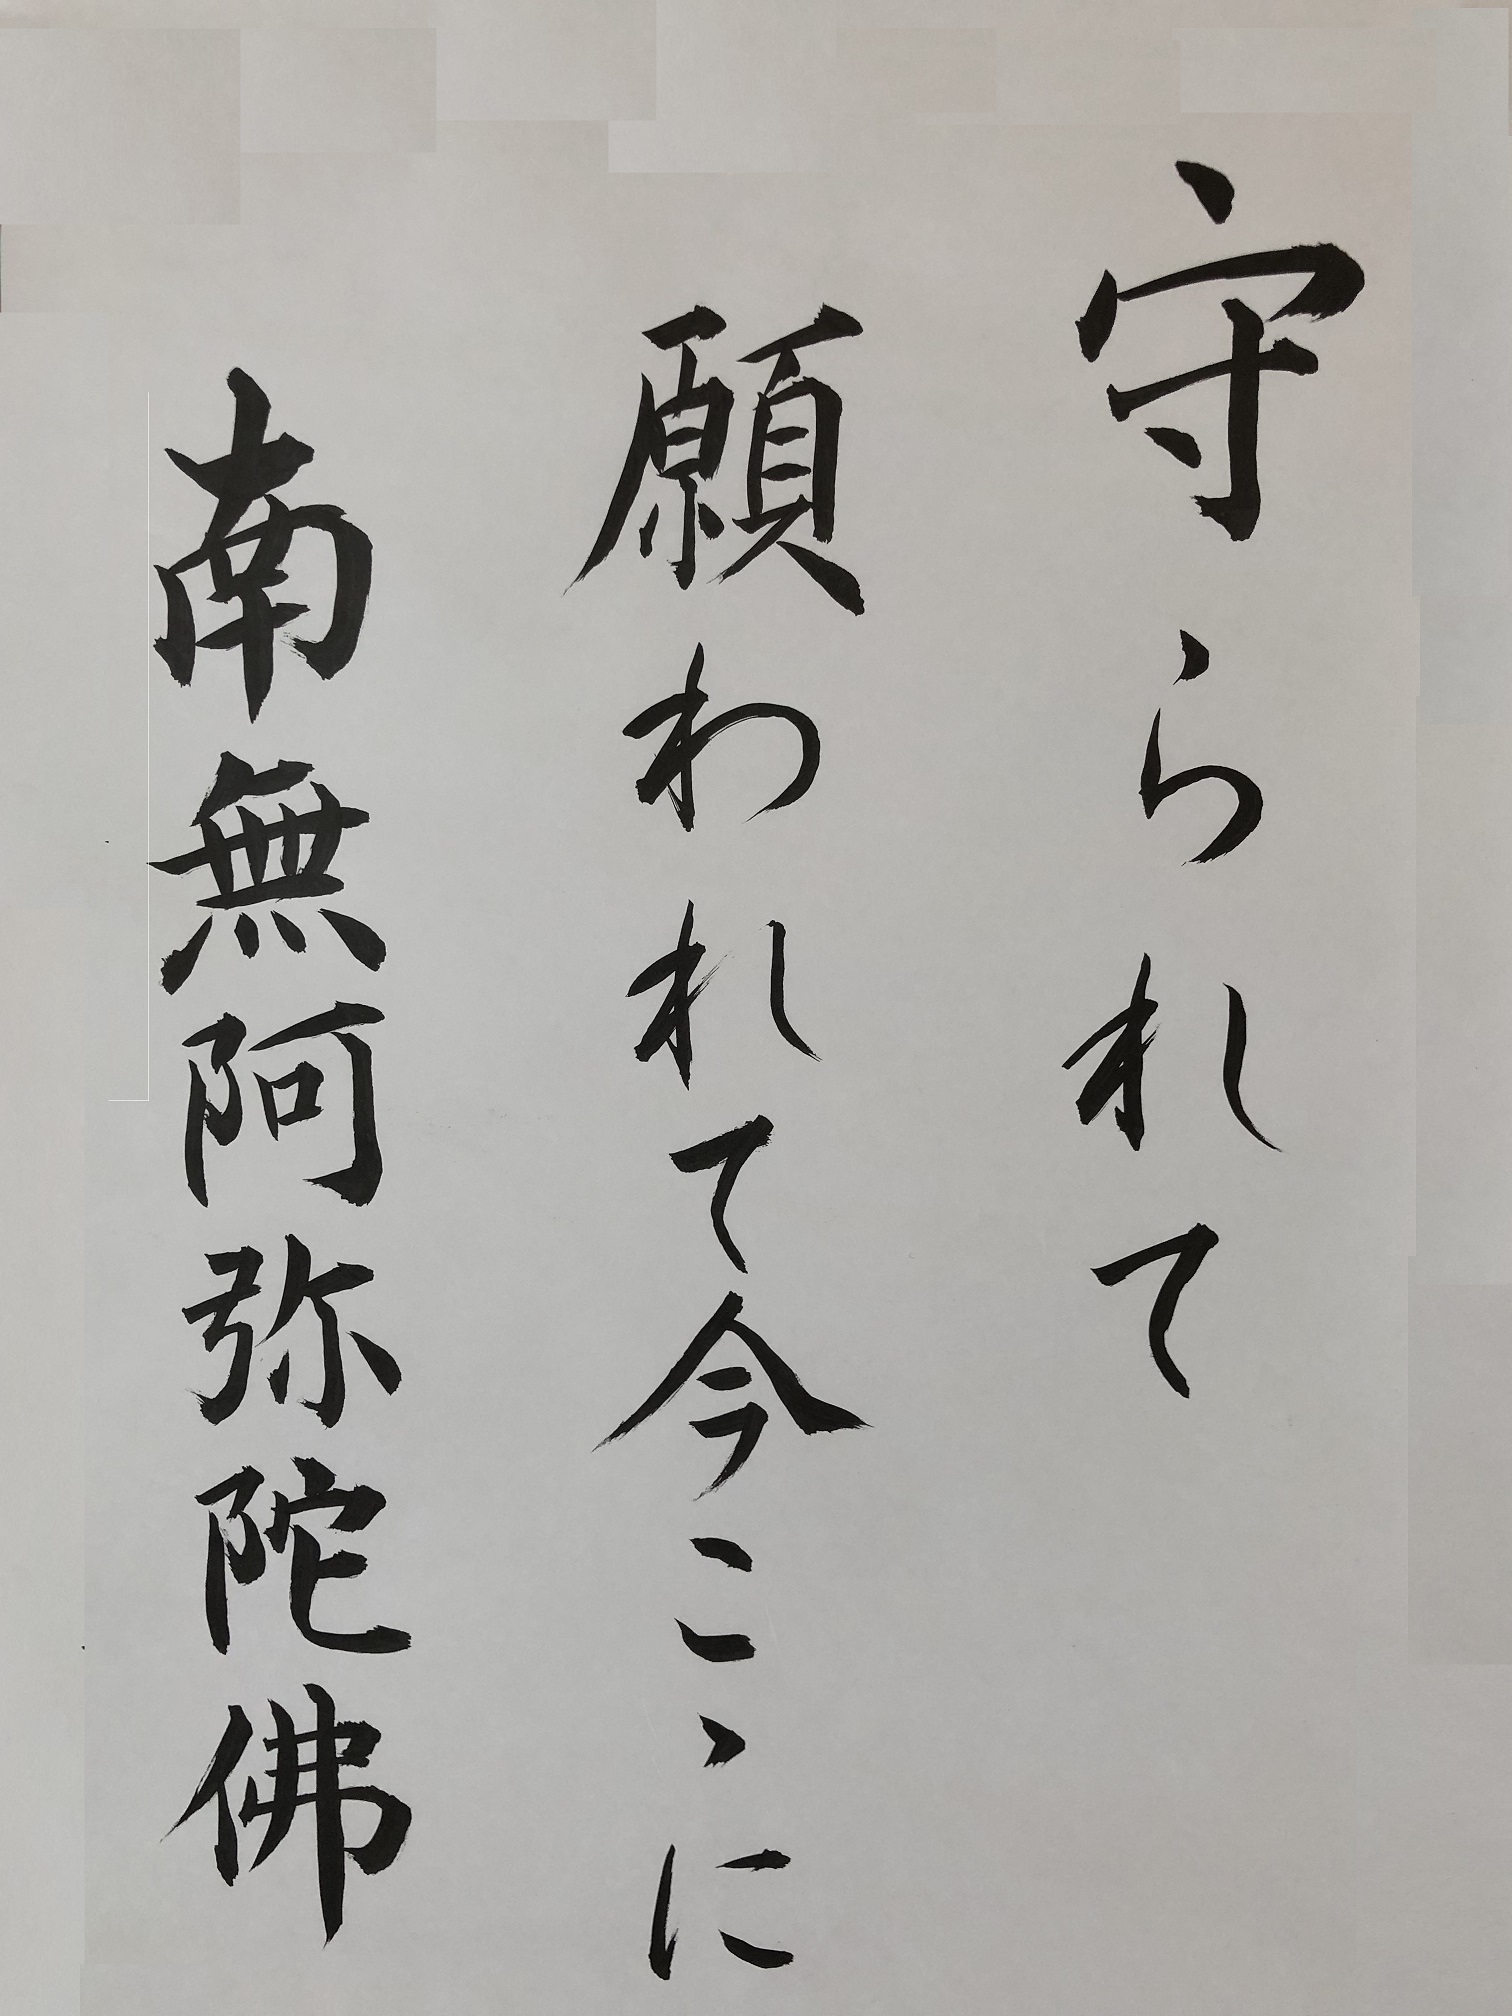 守られて
願われて今こゝに
南無阿弥陀佛